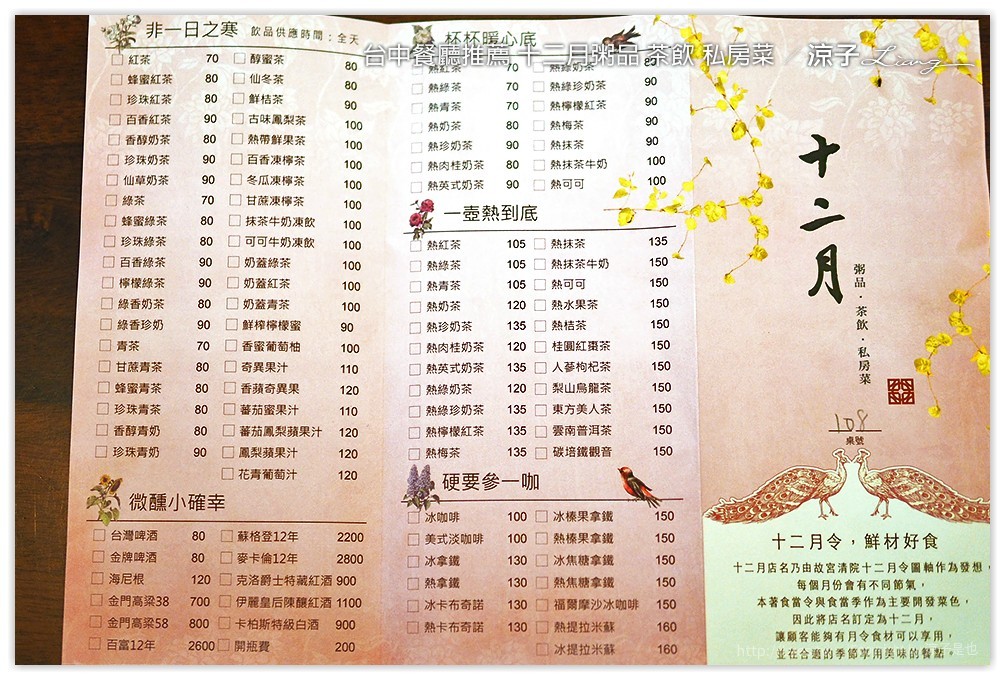 台中餐廳推薦 十二月粥品 茶飲 私房菜 / 涼子 Liang
非一日之寒 飲品供應時間：全天
紅茶 70
蜂蜜紅茶 80
珍珠紅茶 80
百香紅茶 90
香醇奶茶 80
珍珠奶茶 90
仙草奶茶 90
綠茶 70
蜂蜜綠茶 80
珍珠綠茶 80
百香綠茶 90
檸檬綠茶 90
綠香奶茶 80
綠香珍奶 90
青茶 70
甘蔗青茶 80
蜂蜜青茶 80
珍珠青茶 80
香醇青奶 80
珍珠青奶 90
醇蜜茶 80
仙冬茶 80
鮮桔茶 90
古味鳳梨茶 100
熱帶鮮果茶 100
百香凍檸茶 100
冬瓜凍檸茶 100
甘蔗凍檸茶 100
抹茶牛奶凍飲 100
可可牛奶凍飲 100
奶蓋綠茶 100
奶蓋紅茶 100
奶蓋青茶 100
鮮榨檸檬蜜 90
香蜜葡萄柚 100
奇異果汁 110
香蘋奇異果 120
蕃茄蜜果汁 110
蕃茄鳳梨蘋果汁 120
鳳梨蘋果汁 120
花青葡萄汁 120
微醺小確幸
台灣啤酒 80
金牌啤酒 80
海尼根 120
金門高粱38 700
金門高粱58 800
百富12年 2600
蘇格登12年 2200
麥卡倫12年 2800
克洛爵士特藏紅酒 900
伊麗皇后陳釀紅酒 1100
卡柏斯特級白酒 900
開瓶費 200
杯杯暖心底
熱紅茶 70
熱綠茶 70
熱青茶 70
熱奶茶 80
熱珍奶茶 90
熱肉桂奶茶 80
熱英式奶茶 90
熱綠奶茶 80
熱綠珍奶茶 90
熱檸檬紅茶 90
熱梅茶 90
熱抹茶 90
熱抹茶牛奶 100
熱可可 100
一壺熱到底
熱紅茶 105
熱綠茶 105
熱青茶 105
熱奶茶 120
熱珍奶茶 135
熱肉桂奶茶 120
熱英式奶茶 135
熱綠奶茶 120
熱綠珍奶茶 135
熱檸檬紅茶 135
熱梅茶 135
熱抹茶 135
熱抹茶牛奶 150
熱可可 150
熱水果茶 150
熱桔茶 150
桂圓紅棗茶 150
人蔘枸杞茶 150
梨山烏龍茶 150
東方美人茶 150
雲南普洱茶 150
碳培鐵觀音 150
硬要參一咖
冰咖啡 100
美式淡咖啡 100
冰拿鐵 130
熱拿鐵 130
冰卡布奇諾 130
熱卡布奇諾 130
冰榛果拿鐵 150
熱榛果拿鐵 150
冰焦糖拿鐵 150
熱焦糖拿鐵 150
福爾摩沙冰咖啡 150
熱提拉米蘇 160
冰提拉米蘇 160
十二月
粥品．茶飲．私房菜
108
桌號
十二月令，鮮材好食
十二月店名乃由故宮清院十二月令圖軸作為發想，
每個月份會有不同節氣，
本著食當令與食當季作為主要開發菜色，
因此將店名訂定為十二月，
讓顧客能夠有月令食材可以享用，
並在合適的季節享用美味的餐點。